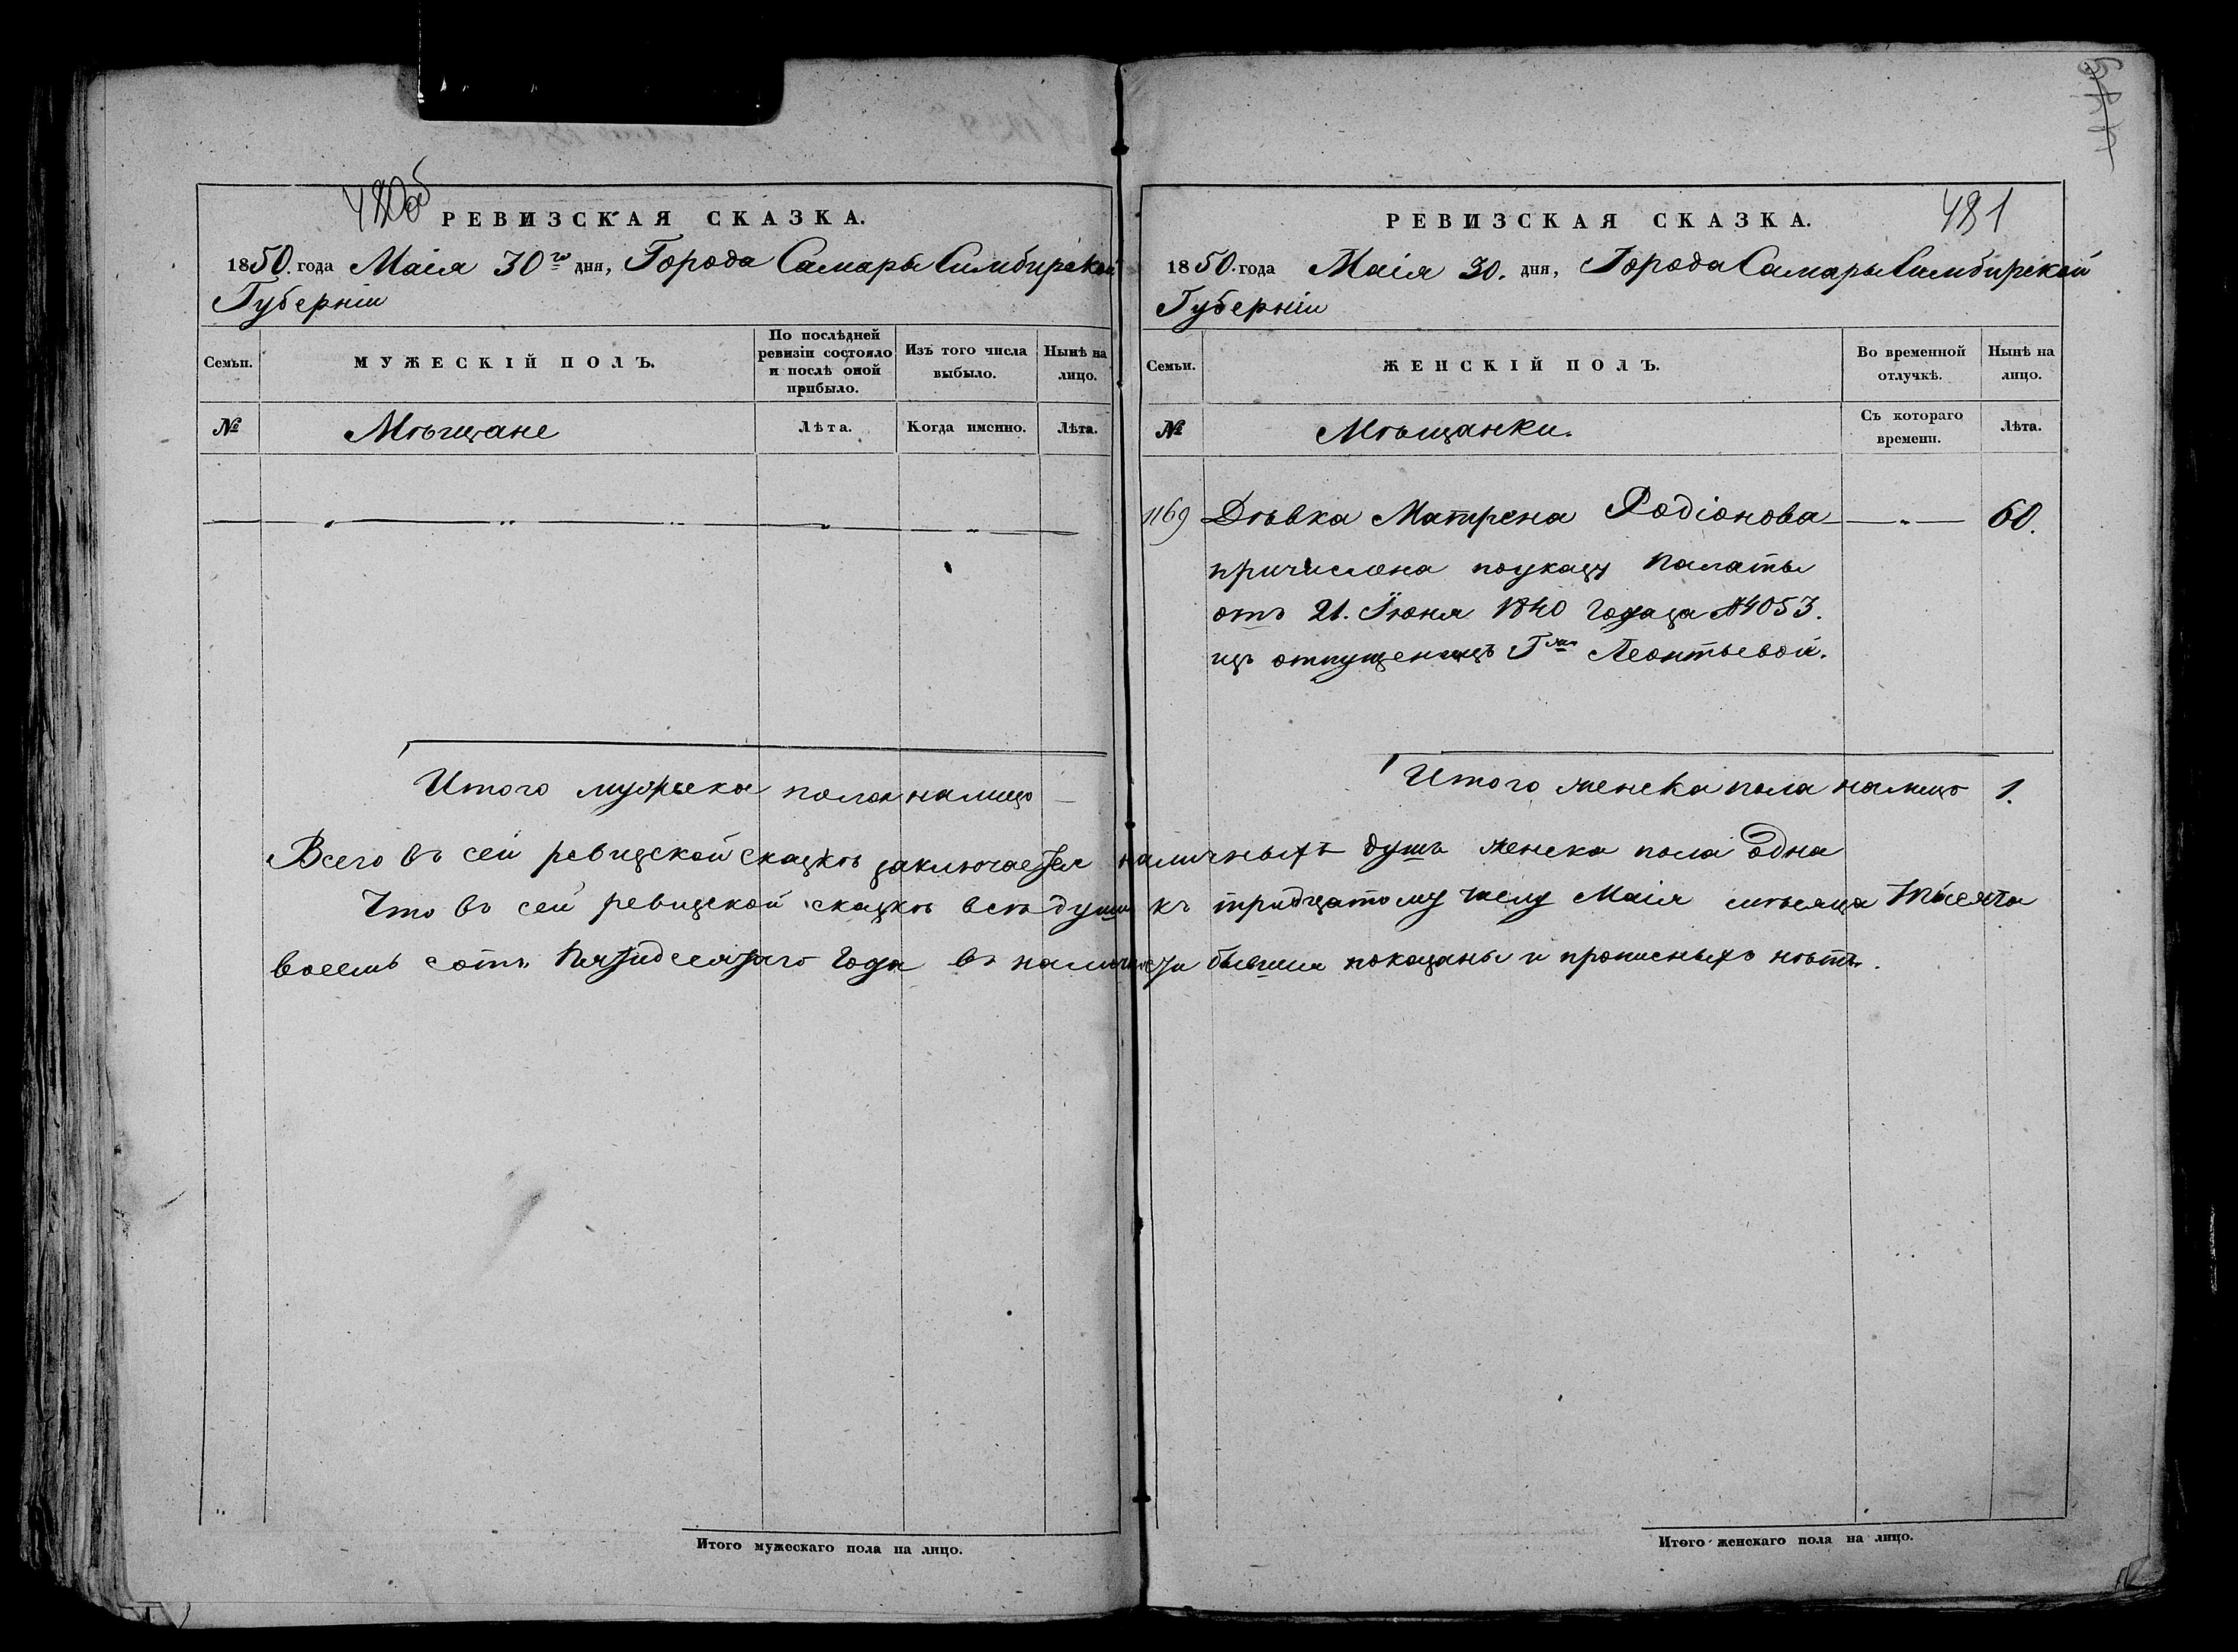 480об
РЕВИЗСКАЯ СКАЗКА.
1850. года Маія 30го дня, Города Самары Симбирской
Губерніи
Семьи.
МУЖЕСКІЙ ПОЛЪ.
По послѣдней ревизіи состояло и послѣ оной прибыло.
Изъ того числа выбыло.
Нынѣ на лицо.
№
Мѣщане
Лѣта.
Когда именно.
Лѣта.
Итого мужеска пола налицо —
Итого мужескаго пола на лицо.
481
РЕВИЗСКАЯ СКАЗКА.
1850. года Маія 30. дня, Города Самары Симбирской
Губерніи
Семьи.
ЖЕНСКІЙ ПОЛЪ.
Во временной отлучкѣ.
Нынѣ на лицо.
№
Мѣщанки.
Съ котораго времени.
Лѣта.
1169 Дѣвка Матрена Родіонова — „ — 60.
причислена поуказу палаты
отъ 21. Іюня 1840 года за № 4053.
изъ отпущеницъ Гжи Леонтьевой.
Итого женска пола налицо 1.
Всего въ сей ревизской сказкѣ заключается наличныхъ душъ женска пола одна
Что въ сей ревизской сказкѣ всѣ души къ тридцатому числу Маія мѣсяца тысяча
восемь сотъ пятидесятаго года въ наличности бывшія показаны и прописныхъ нѣтъ.
Итого женскаго пола на лицо.